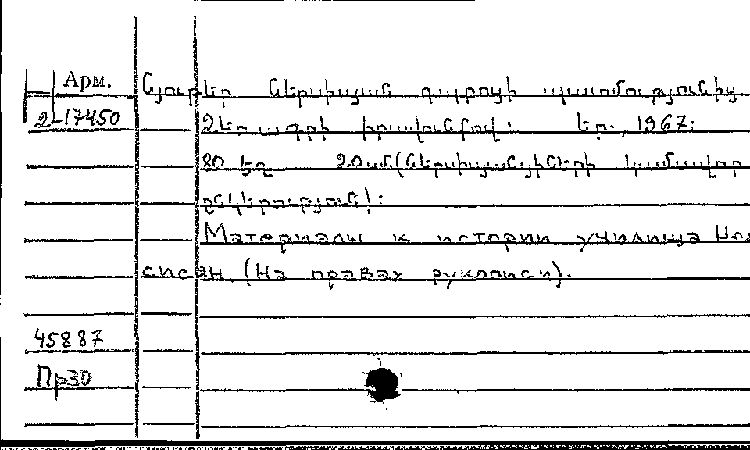 Арм. Նյութեր Ներսիսյան դպրոցի պատմությունից.
2-17450 Ձեռագրի իրավունքով: Եր., 1967:
80 եջ 20սմ (Ներսիսյանցիների կամավոր
ընկերություն):
Материалы к истории училища
сисян. (На правах рукописи).
45887
Пр30